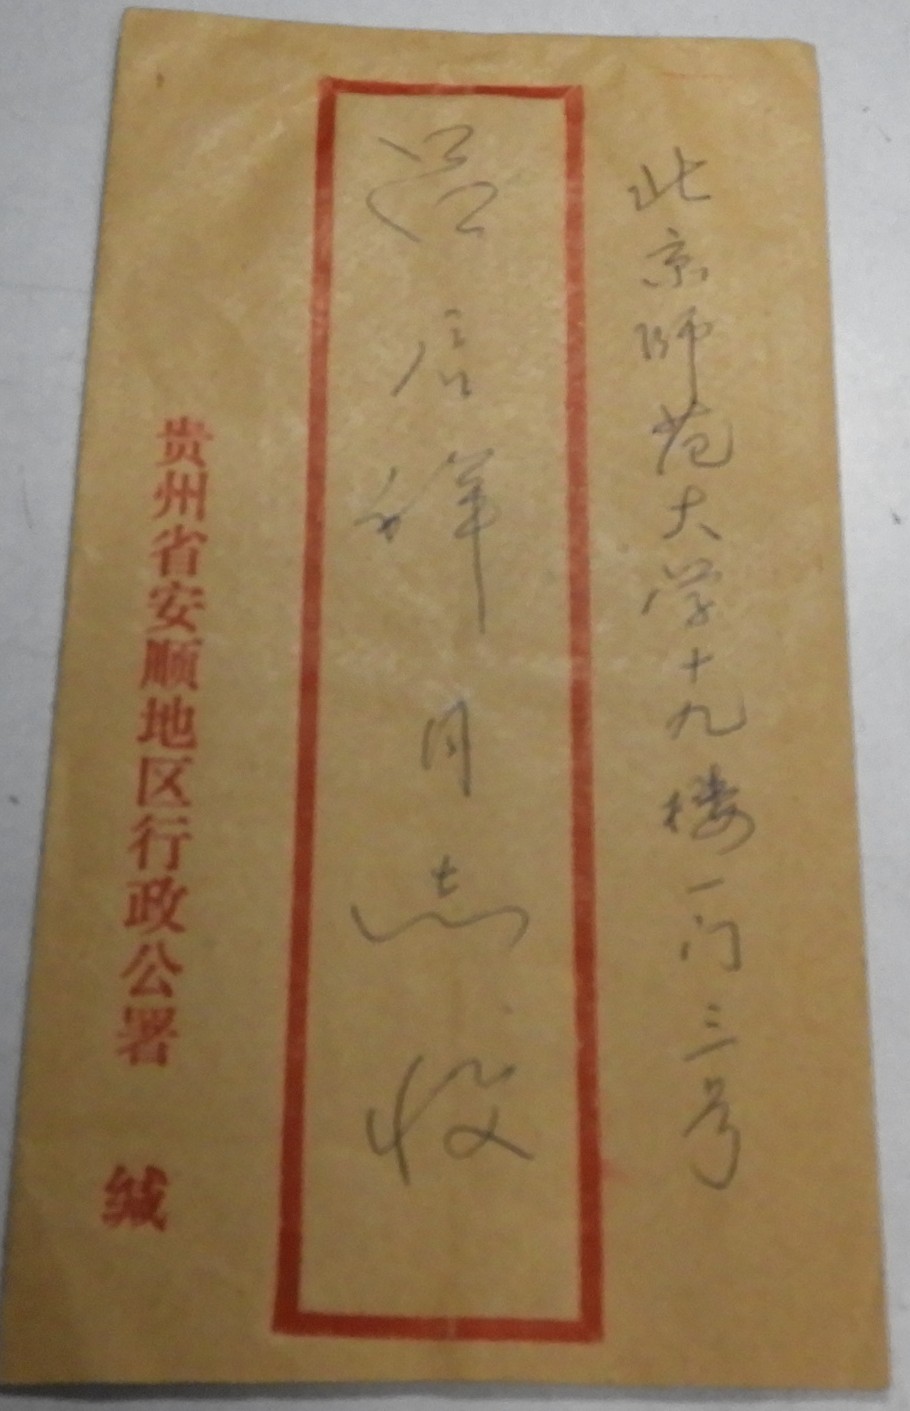 北京师范大学十九楼一门三号
吕启祥同志 收
贵州省安顺地区行政公署 缄